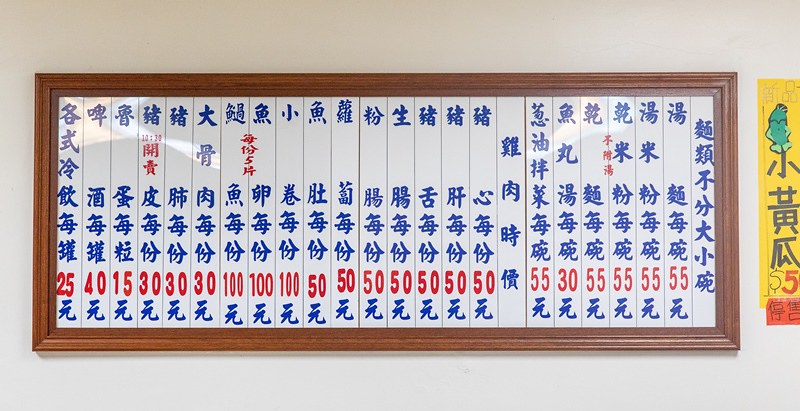 麵類不分大小碗
湯麵每碗55元
湯米粉每碗55元
乾米粉每碗55元
不附湯
乾麵每碗55元
魚丸湯每碗30元
葱油拌菜每碗55元
雞肉時價
豬心每份50元
豬肝每份50元
豬舌每份50元
生腸每份50元
粉腸每份50元
蘿蔔每份50元
魚肚每份50元
小卷每份100元
魚卵每份100元
每份5片
鯃魚每份100元
大骨肉每份30元
豬肺每份30元
豬皮每份30元
10:30開賣
魯蛋每粒15元
啤酒每罐40元
各式冷飲每罐25元
小黃瓜
$50
停售